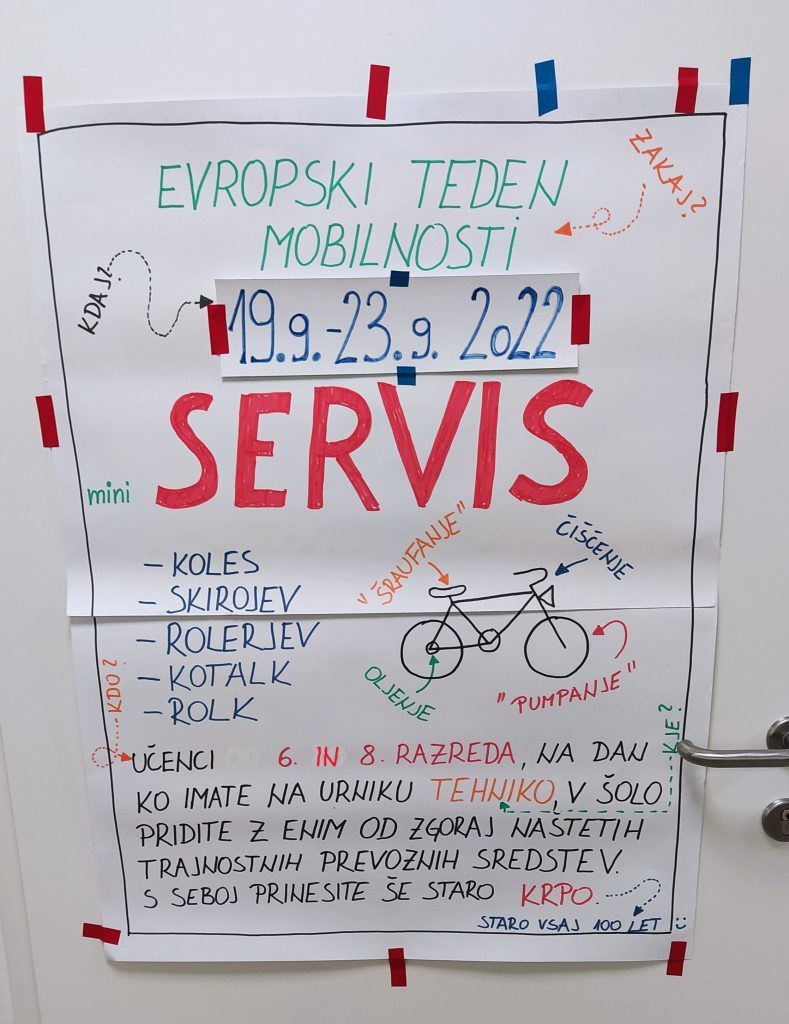 ZAKAJ?
EVROPSKI TEDEN
MOBILNOSTI
KDAJ?
19.9.-23.9. 2022
mini SERVIS
- KOLES
- SKIROJEV
- ROLERJEV
- KOTALK
- ROLK
"ŠRAUFANJE"
ČIŠČENJE
OLJENJE
"PUMPANJE"
KDO?
KJE?
UČENCI 6. IN 8. RAZREDA, NA DAN
KO IMATE NA URNIKU TEHNIKO, V ŠOLO
PRIDITE Z ENIM OD ZGORAJ NAŠTETIH
TRAJNOSTNIH PREVOZNIH SREDSTEV.
S SEBOJ PRINESITE ŠE STARO KRPO.
STARO VSAJ 100 LET :)